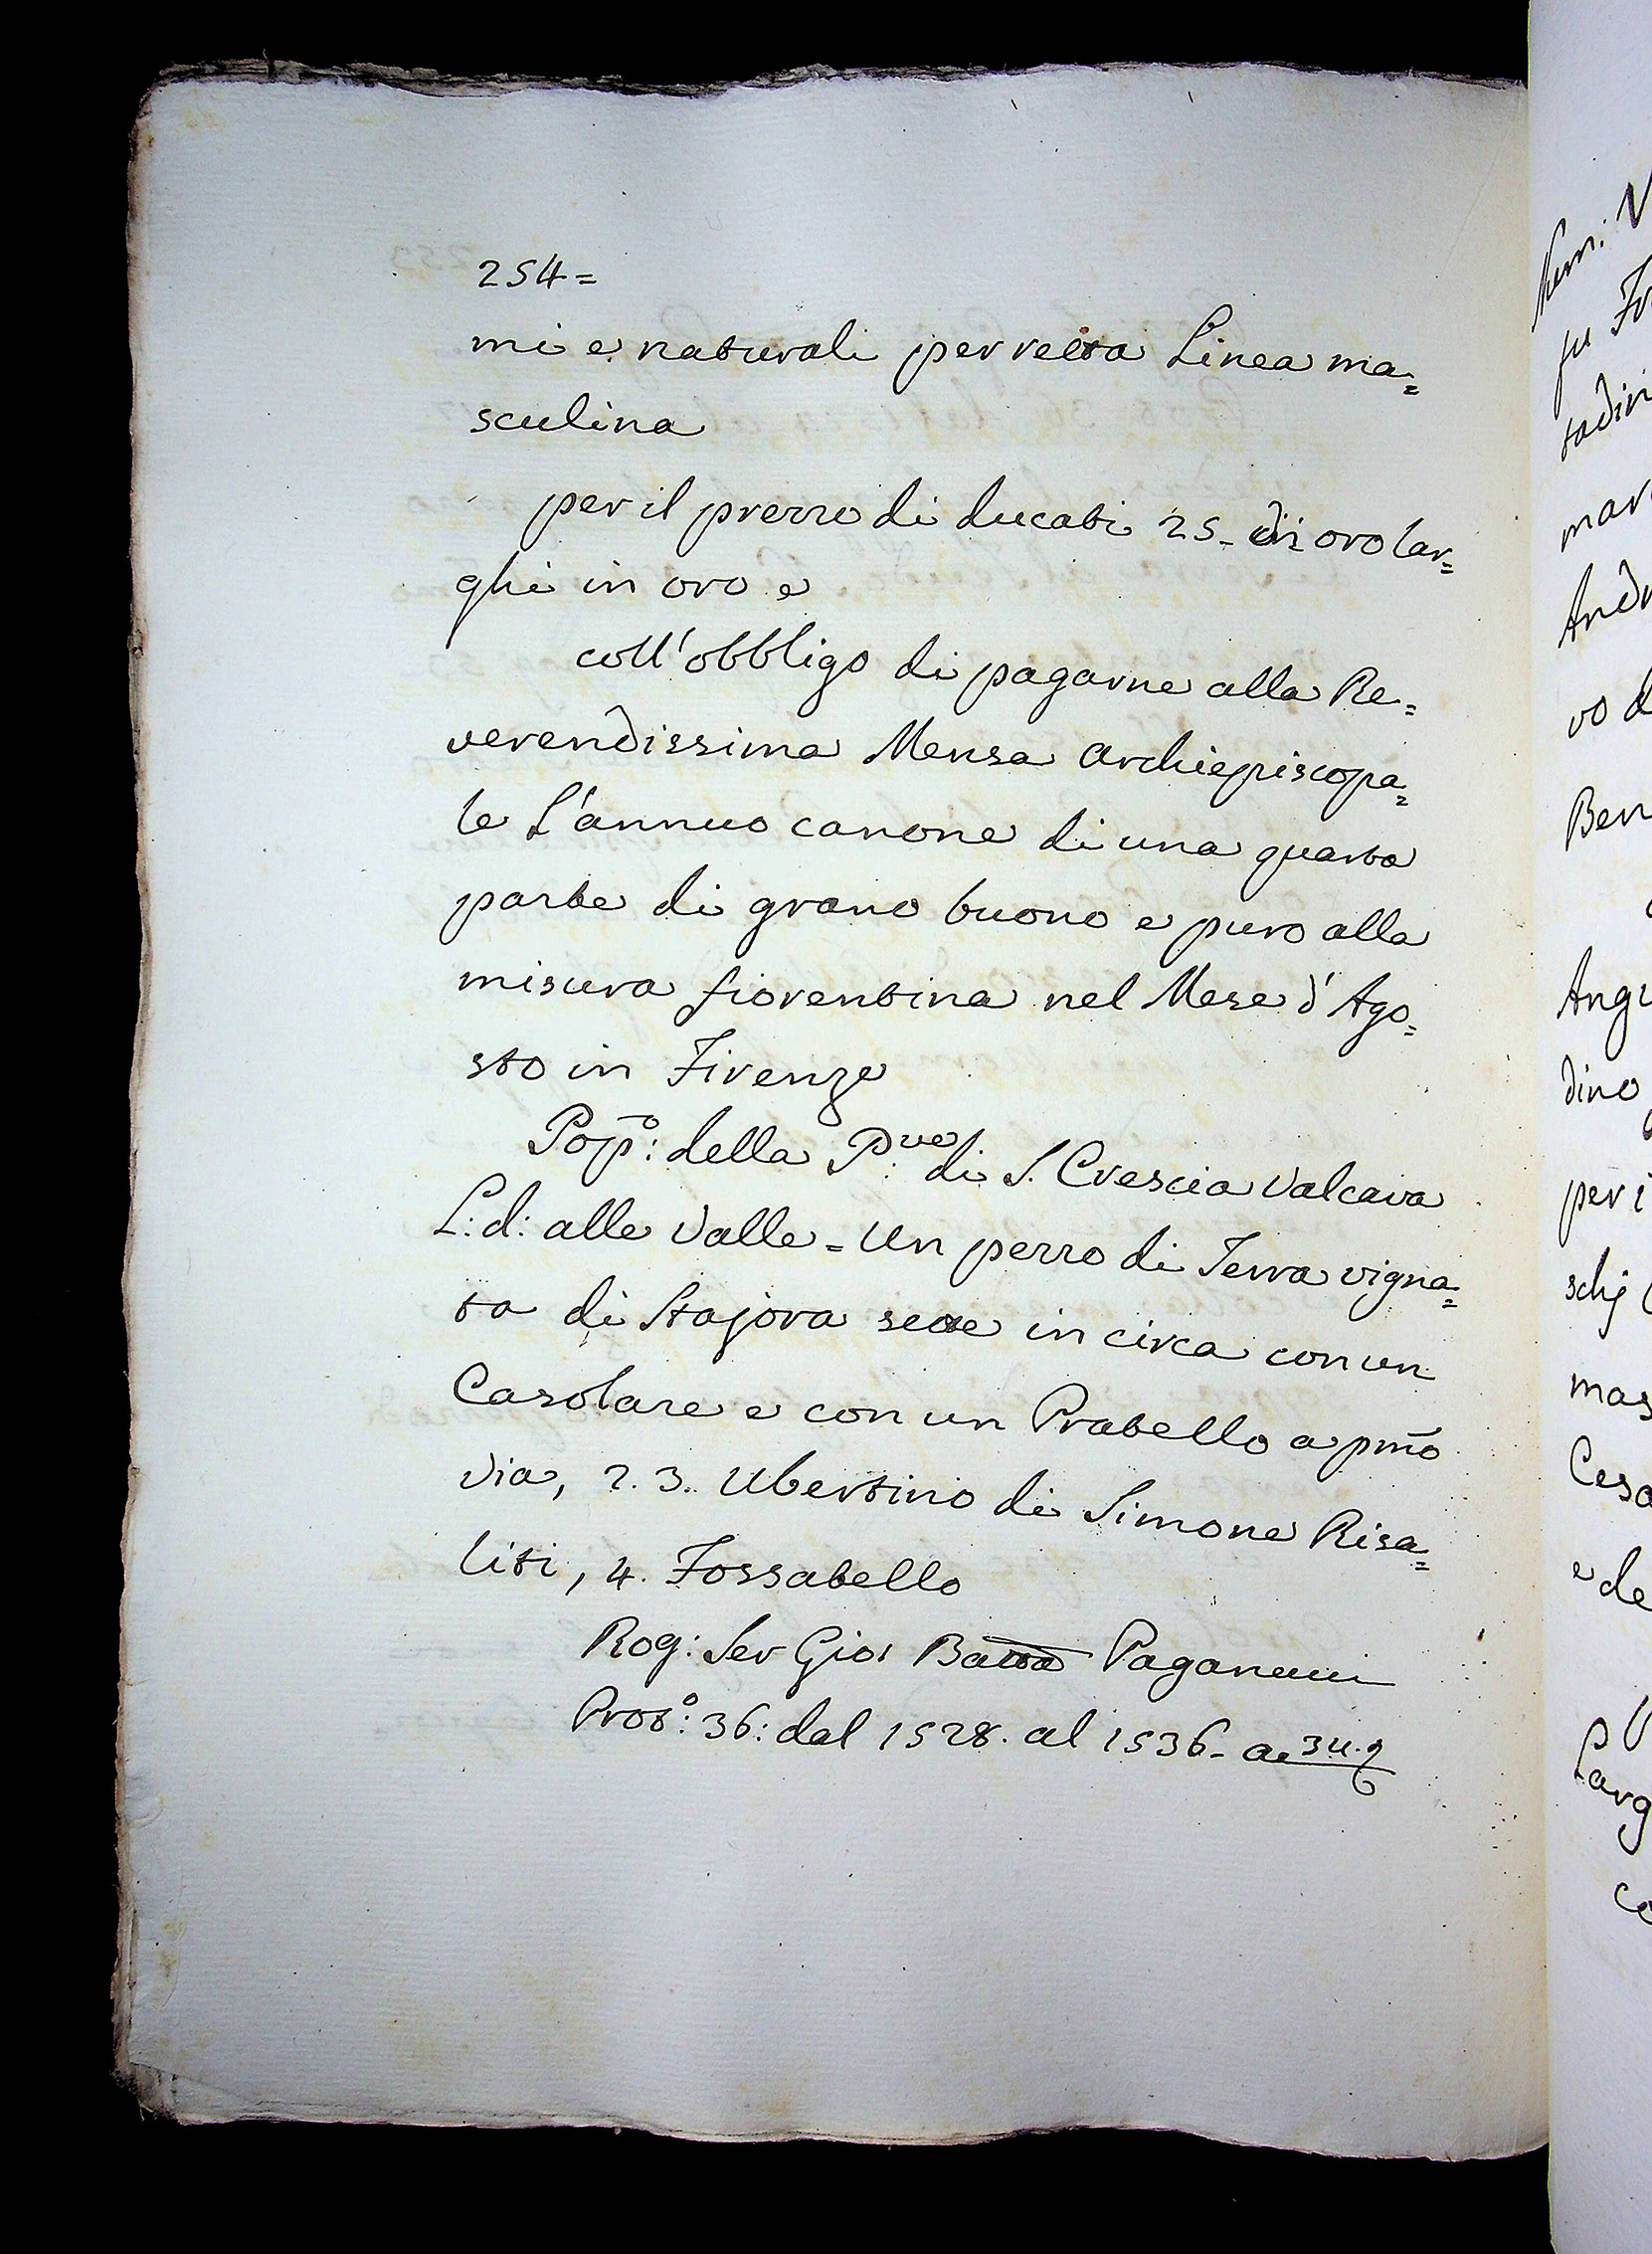 254=
mi e naturali per retta Linea ma=
sculina
per il prezzo di ducati 25- di oro lar=
ghi in oro e
coll'obbligo di pagarne alla Re=
verendissima Mensa Archiepiscopa=
le L'annuo canone di una quarta
parte di grano buono e puro alla
misura fiorentina nel Mese d'Ago=
sto in Firenze
Pop̄o: della P.ve di S. Crescia Valcava
L: d: alle Valle = Un pezzo di Terra vigna=
ta di Stajora sette in circa con un
Casolare e con un Pratello a pm̄o
via, 2. 3. Ubertino di Simone Risa=
liti, 4. Fossatello
Rog: Ser Gio: Batta Paganucci
Proto: 36: dal 1528. al 1536- a
Num:
tadin
mar
vo d
Ben
dino
per i
schj
mas
e de